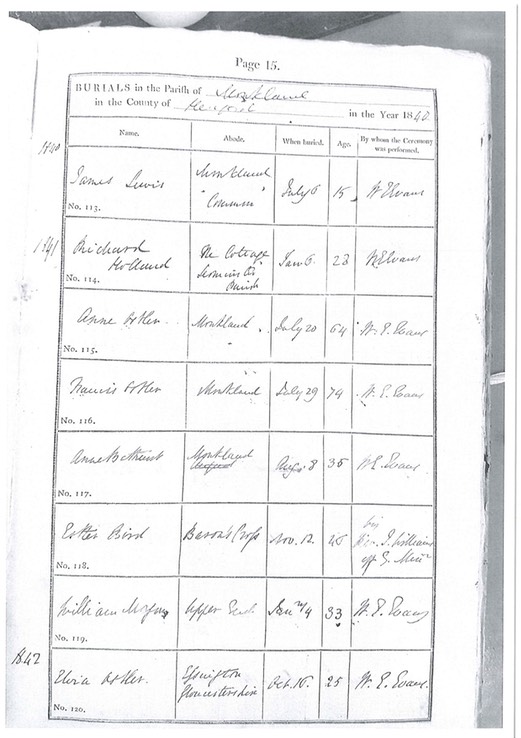 Page 15.
BURIALS in the Parish of Monkland
in the County of Hereford in the Year 1840.
Name. Abode. When buried. Age. By whom the Ceremony was performed.
1840
James Lewis Monkland "Common" July 6 15 W E Evans
No. 113.
1841
Richard Holland The Cottage Leominster Parish Jan 6. 23 W E Evans
No. 114.
Anne Monkland July 20 64 W. E. Evans
No. 115.
Francis Monkland July 29 74 W. E. Evans
No. 116.
Anne Monkland August Aug. 8 35 W E. Evans
No. 117.
Esther Bird Baron's Cross Nov. 12. by Rev. J. Williams off. g. Minr
No. 118.
William Upper End Jan 33 W. E. Evans
No. 119.
1842
Gloucestershire Oct. 16. 25 W. E. Evans.
No. 120.